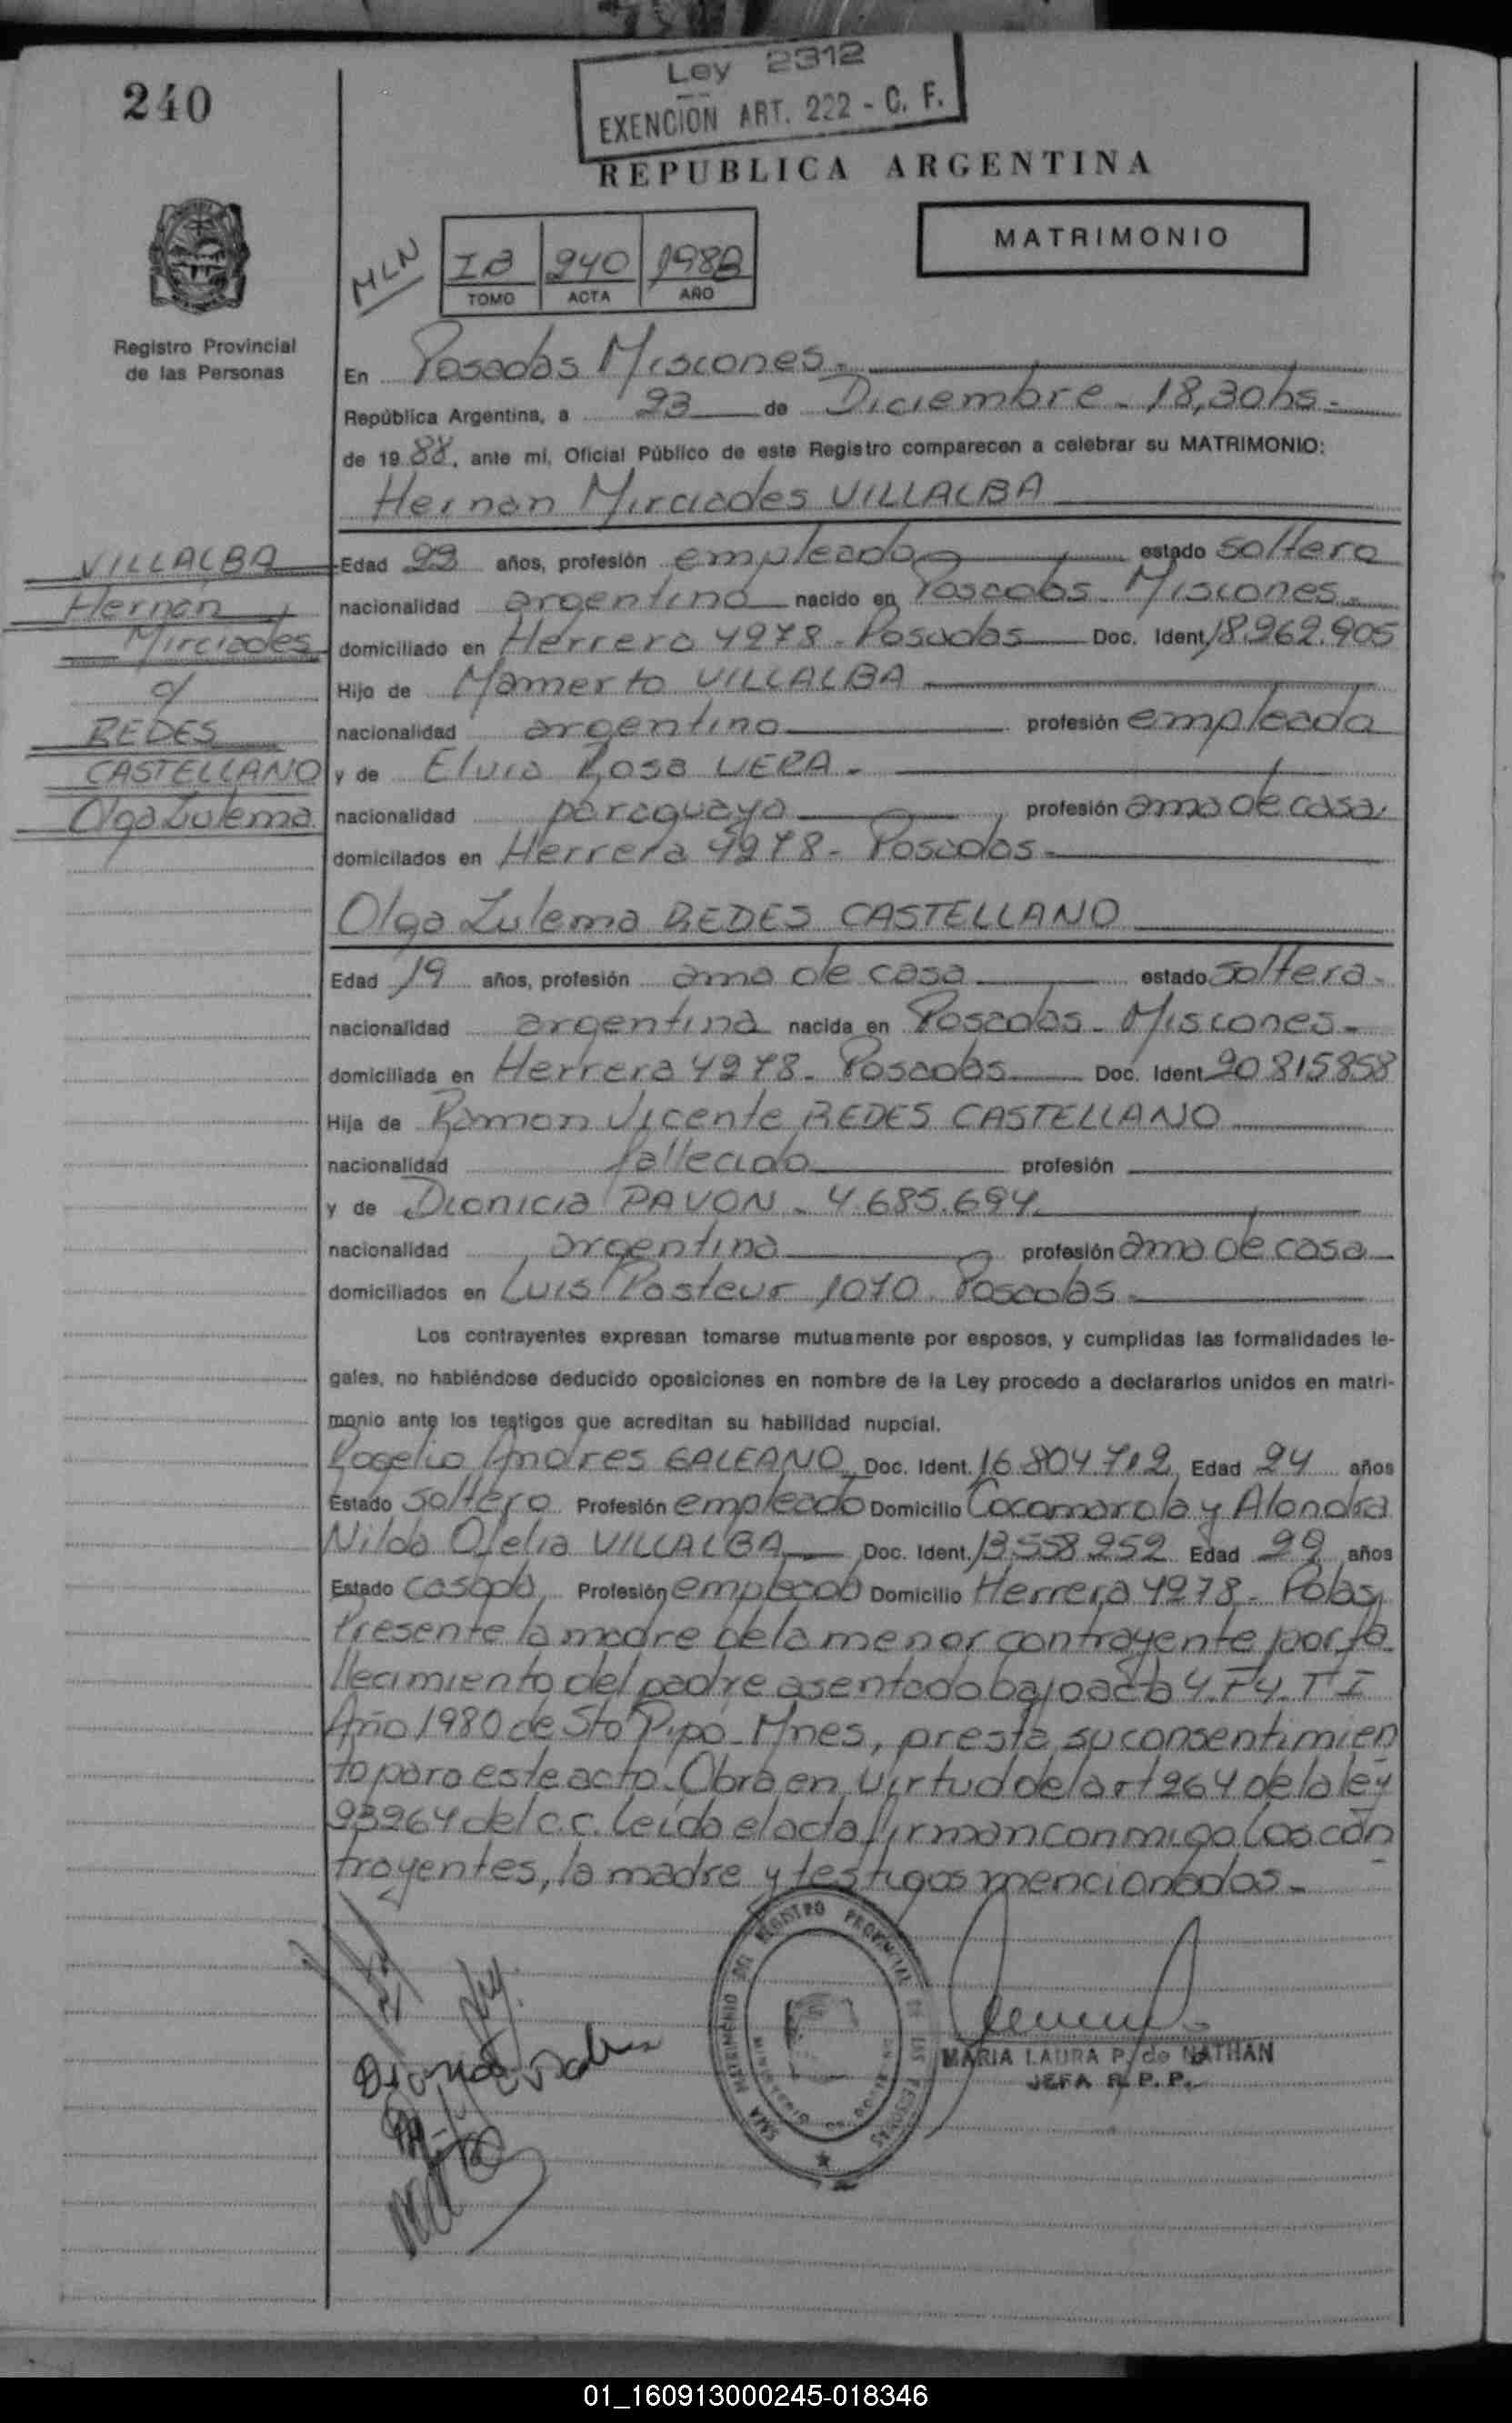 240
Ley 2312
EXENCION ART. 222 - C. F.
REPUBLICA ARGENTINA
MATRIMONIO
MLN
240 1988
TOMO ACTA AÑO
Registro Provincial
de las Personas
En Posadas Misiones.
República Argentina, a 23 de Diciembre - 18,30hs -
de 1988, ante mi, Oficial Público de este Registro comparecen a celebrar su MATRIMONIO:
Hernan Mirciades VILLALBA
VILLALBA
Hernán
Mirciades
c/
REDES
CASTELLANO
Olga Zulema
Edad años, profesión empleado estado soltero
nacionalidad argentino nacido en Posadas - Misiones -
domiciliado en Herrera 4278 - Posadas Doc. Ident. 18.262.905
Hijo de Mamerto VILLALBA
nacionalidad argentino profesión empleado
y de Elvia Rosa VERA -
nacionalidad paraguaya profesión ama de casa
domicilados en Herrera 4278 - Posadas -
Olga Zulema REDES CASTELLANO
Edad 19 años, profesión ama de casa estado soltera -
nacionalidad argentina nacida en Posadas - Misiones -
domiciliada en Herrera 4278 - Posadas Doc. Ident. 20.815.858
Hija de Ramon Vicente REDES CASTELLANO
nacionalidad fallecido profesión
y de Dionicia PAVON - 4.685.694
nacionalidad argentina profesión ama de casa
domiciliados en Luis Pasteur 1070 Posadas -
Los contrayentes expresan tomarse mutuamente por esposos, y cumplidas las formalidades le-
gales, no habiéndose deducido oposiciones en nombre de la Ley procedo a declararlos unidos en matri-
monio ante los testigos que acreditan su habilidad nupcial.
Rogelio Andres GALEANO Doc. Ident. 16.804.712 Edad 24 años
Estado soltero Profesión empleado Domicilio Cocomarola y Alondra
Nilda Ofelia VILLALBA Doc. Ident. 13.558.252 Edad 29 años
Estado casada Profesión empleada Domicilio Herrera 4278 - Pdas
Presente la madre de la menor contrayente por fa
llecimiento del padre asentado bajo acta 4. F4. T I
Año 1980 de Sto Pipó - Mnes, presta su consentimien
to para este acto. Obra en virtud del art 264 de la ley
23264 del c.c. Leida el acta firman conmigo los con
trayentes, la madre y testigos mencionados -
REGISTRO PROVINCIAL DE LAS PERSONAS
MARIA LAURA P. de NATHAN
JEFA R. P. P.
01_160913000245-018346